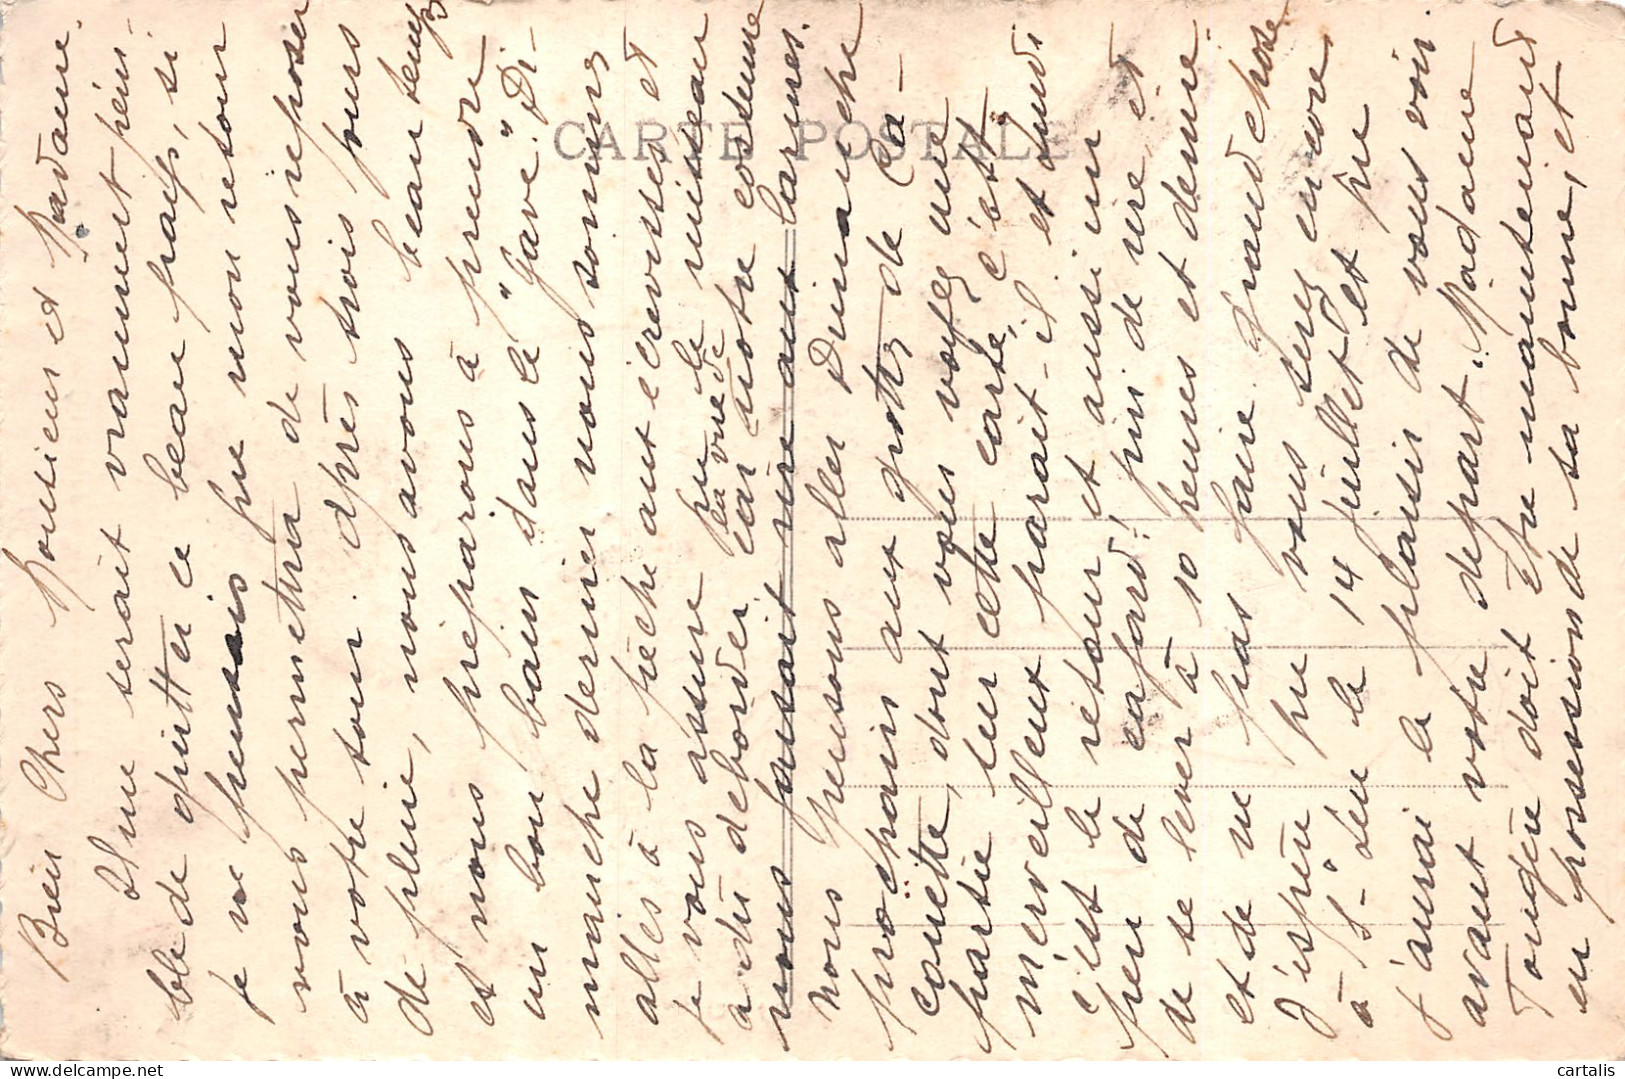 Bien Chers Monsieur et Madame.
Il me serait vraiment péni-
ble de quitter ce beau pays, si
je ne pensais que mon retour
vous permettra de vous reposer
à votre tour. Après trois jours
de pluie, nous avons beau temps
et nous préparons à prendre
un bon bain dans le "Gave". Di-
manche dernier nous sommes
allés à la pêche aux écrevisses et
je vous assure que le ruisseau
a dû déborder car notre costume
la vue de
nous faisait rire aux larmes.
Nous pensons aller Dimanche
prochain aux grottes de Ca-
couette, dont vous voyez une
partie sur cette carte, c'est
merveilleux paraît-il et lundi
c'est le retour et aussi un
peu de cafard! fini de rire et
de se lever à 10 heures et demie.
et de ne pas faire grand chose.
J'espère que vous serez encore
à St-Leu le 14 juillet et que
j'aurai le plaisir de vous voir
avant votre départ. Madame
Tougère doit être maintenant
en possession de sa bonne, et
CARTE POSTALE